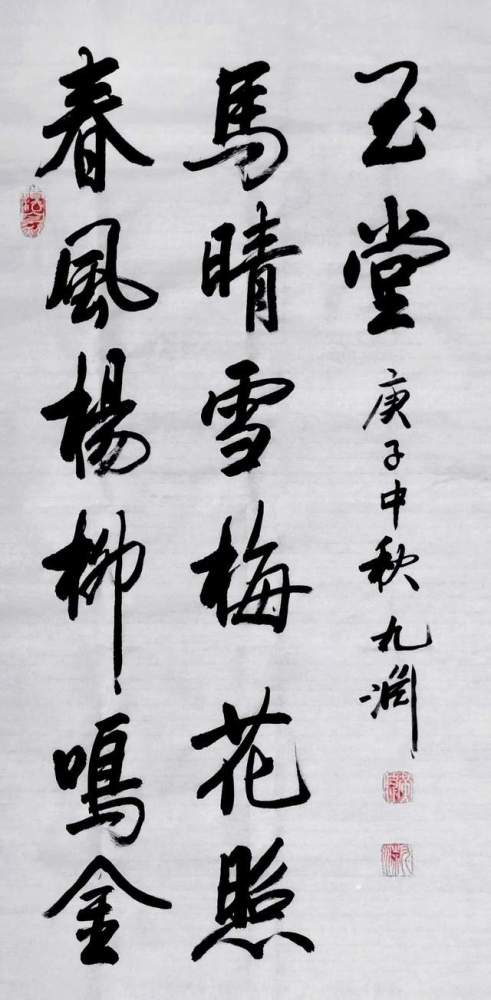 春風楊柳鳴金
馬晴雪梅花照
玉堂
庚子中秋九